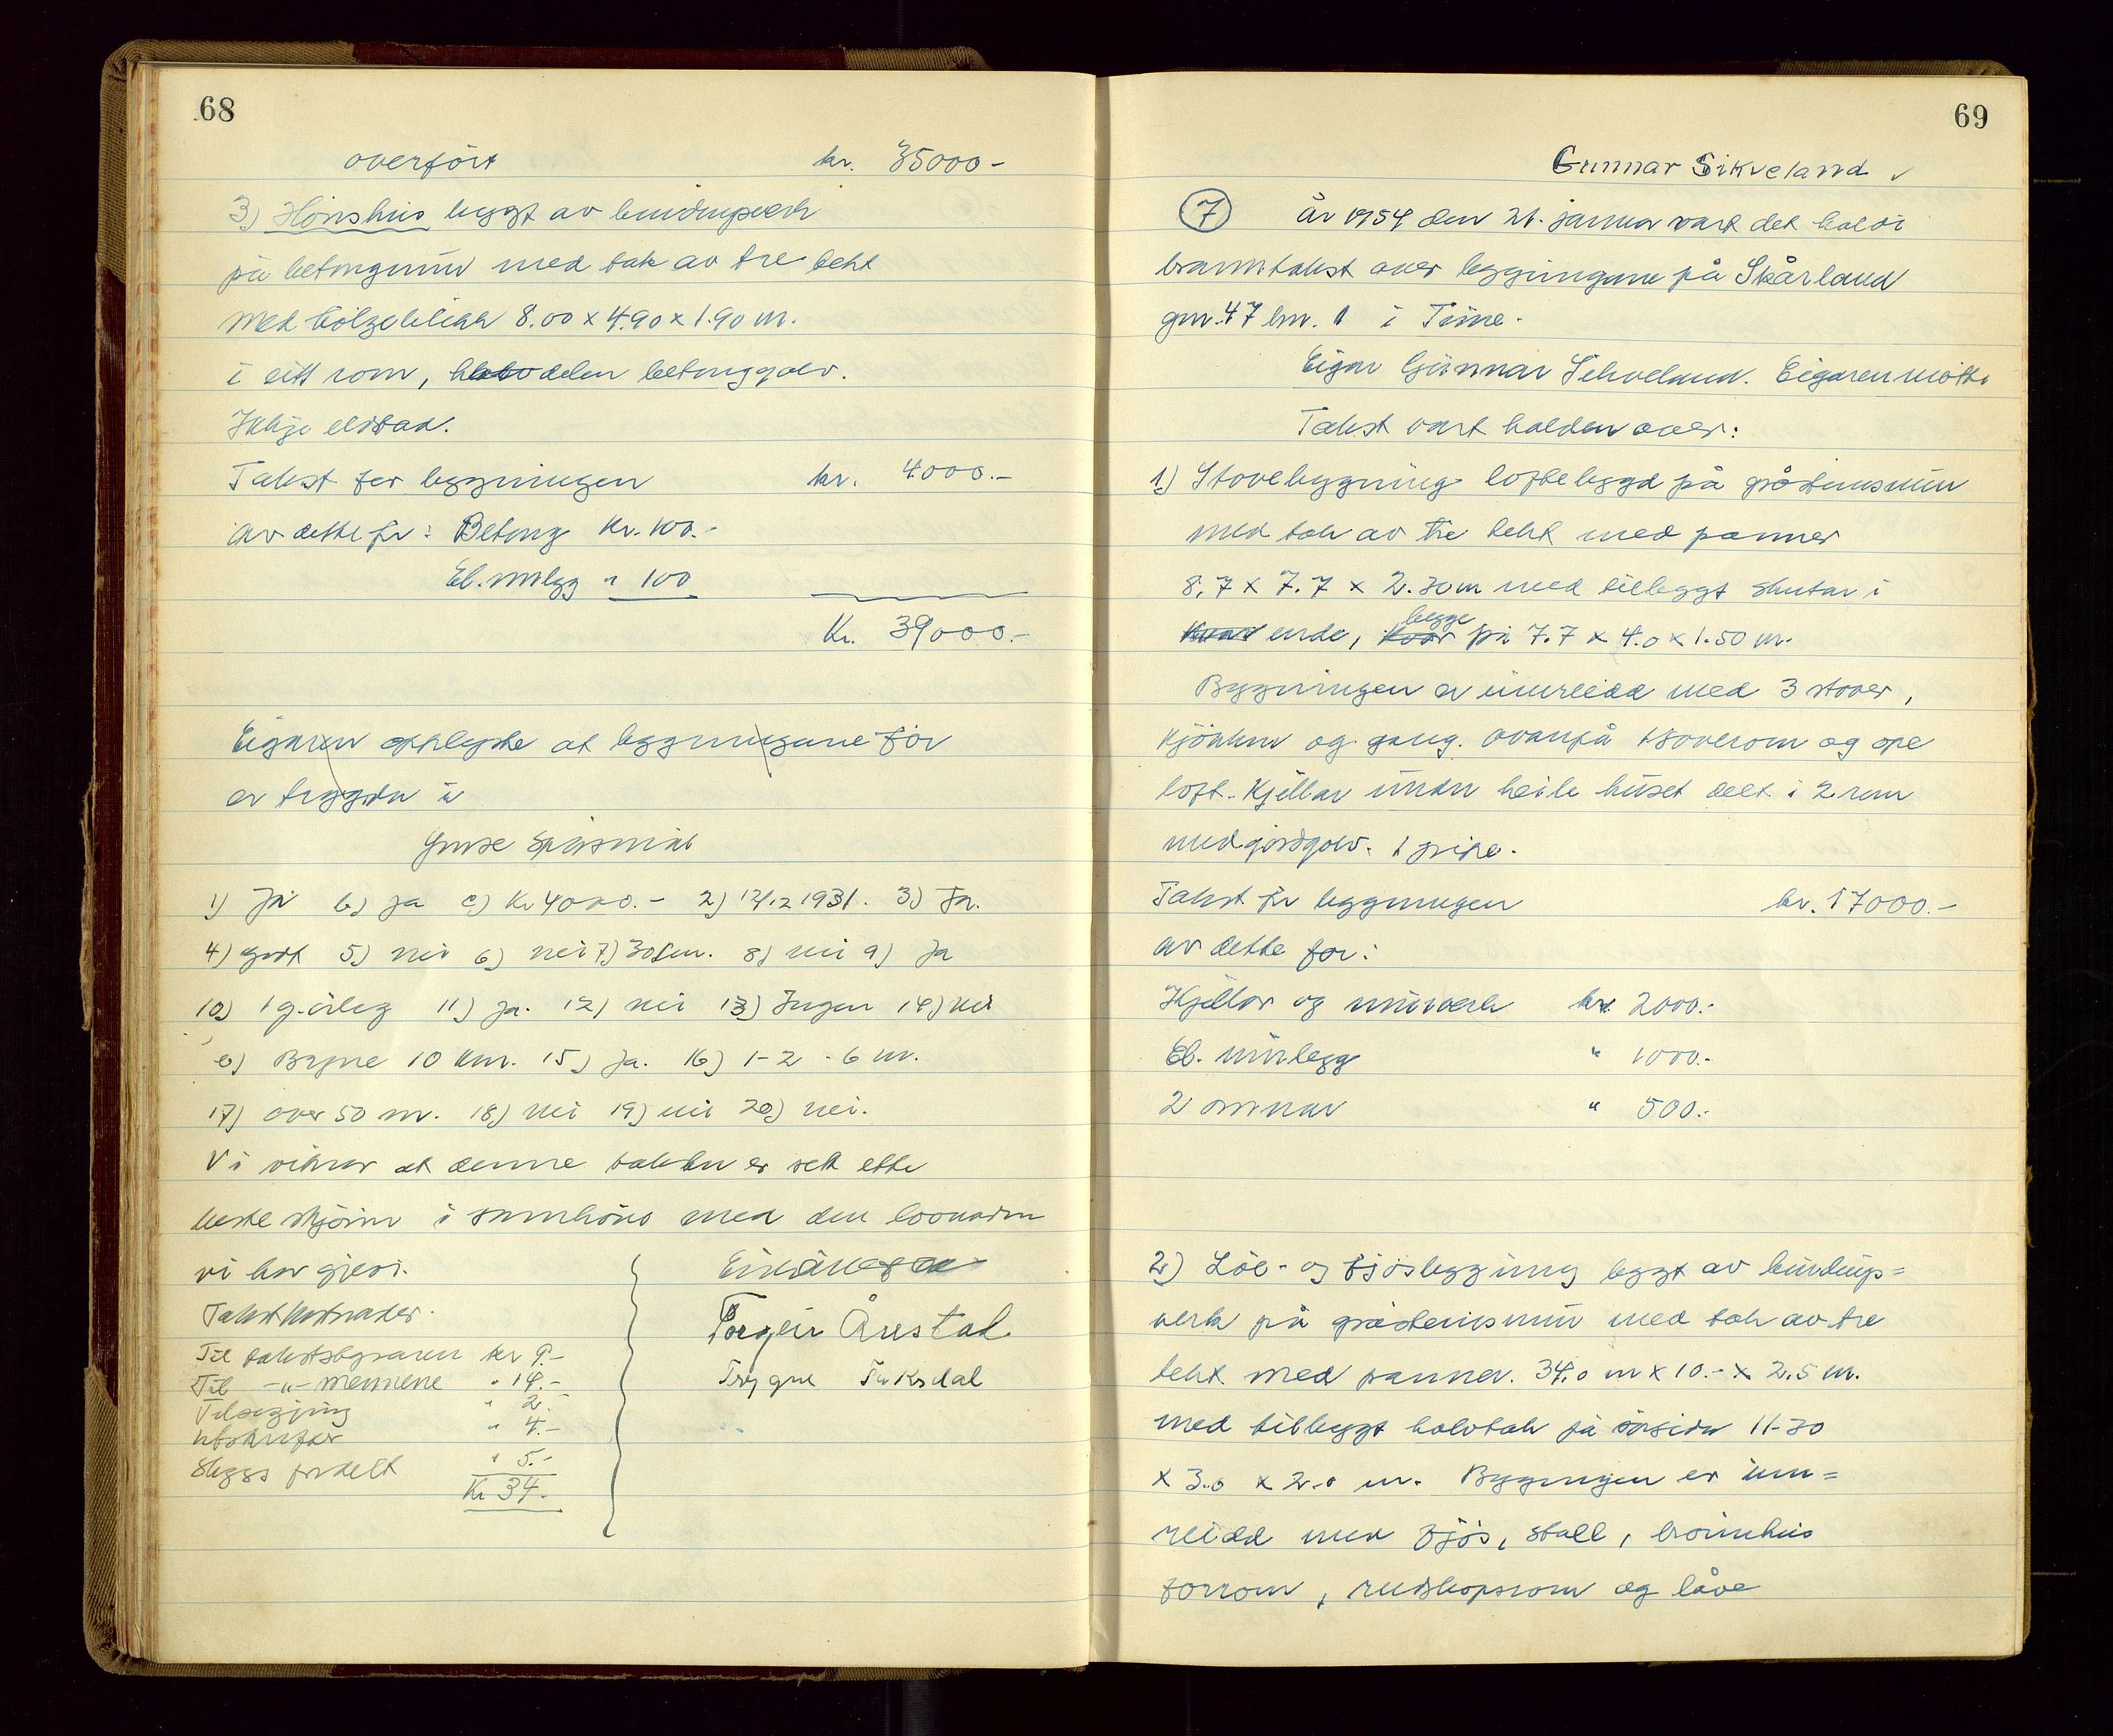 68
overført kr. 35000-
3) Hønshus bygt av bindingsverk
på betongmur med tak av tre tekt
med bølgeblikk 8.00 x 4.90 x 1.90 m.
i eitt rom, halvdelen betonggolv.
Ikkje eldstad.
Takst for bygningen kr. 4000.-
av dette for: Betong Kr. 100.-
El. innlegg " 100
Kr. 39000.-
Eigaren opplyste at bygningane før
er trygda i
Ymse spørsmål
1) Ja b) ja c) Kr 4000.- 2) 12/12 1931. 3) Ja.
4) godt 5) nei 6) nei 7) 30 cm. 8) nei 9) Ja
10) 1 g. årleg 11) ja. 12) nei 13) Ingen 14) nei
e) Bryne 10 km. 15) Ja. 16) 1-2 - 6 m.
17) over 50 m. 18) nei 19) nei 20) nei.
Vi vitnar at denne taksten er sett etter
beste skjønn i samhøve med den lovnaden
vi har gjevi.
Takstkostnader.
Til takstsbyraren kr 9.-
Til -"- mennene " 14.-
Tilsegjing " 2.-
Utskrifter " 4.-
Skyss fordelt " 5.-
Kr 34.-
Torgeir Årestad
Trygve Taksdal
69
Gunnar Sikveland
7 År 1954 den 21. januar vart det haldi
branntakst over bygningane på Skårland
gnr. 47 bnr. 1 i Time.
Eigar Gunnar Sikveland. Eigaren møtte
Takst vart halden over:
1) Stovebygning loftebygd på gråsteinsmur
med tak av tre tekt med panner
8.7 x 7.7 x 2.30 m med tilbygt skutar i
kvar ende, kvar begge på 7.7 x 4.0 x 1.50 m.
Bygningen er innreidd med 3 stover,
kjøkken og gang. ovanpå 1 soverom og ope
loft. Kjellar under heile huset delt i 2 rom
med jordgolv. 1 pipe.
Takst for bygningen kr. 17000.-
av dette for:
Kjellar og murverk kr. 2000.-
El. innlegg " 1000.-
2 omnar " 500.-
2) Løe- og fjøsbygning bygt av bindings=
verk på gråsteinsmur med tak av tre
tekt med panner. 34.0 m x 10.- x 2.5 m.
med tilbygt halvtak på sørsida 11-30
x 3.0 x 2.0 m. Bygningen er inn=
reidd med fjøs, stall, brønnhus
forrom, reidskapsrom og låve